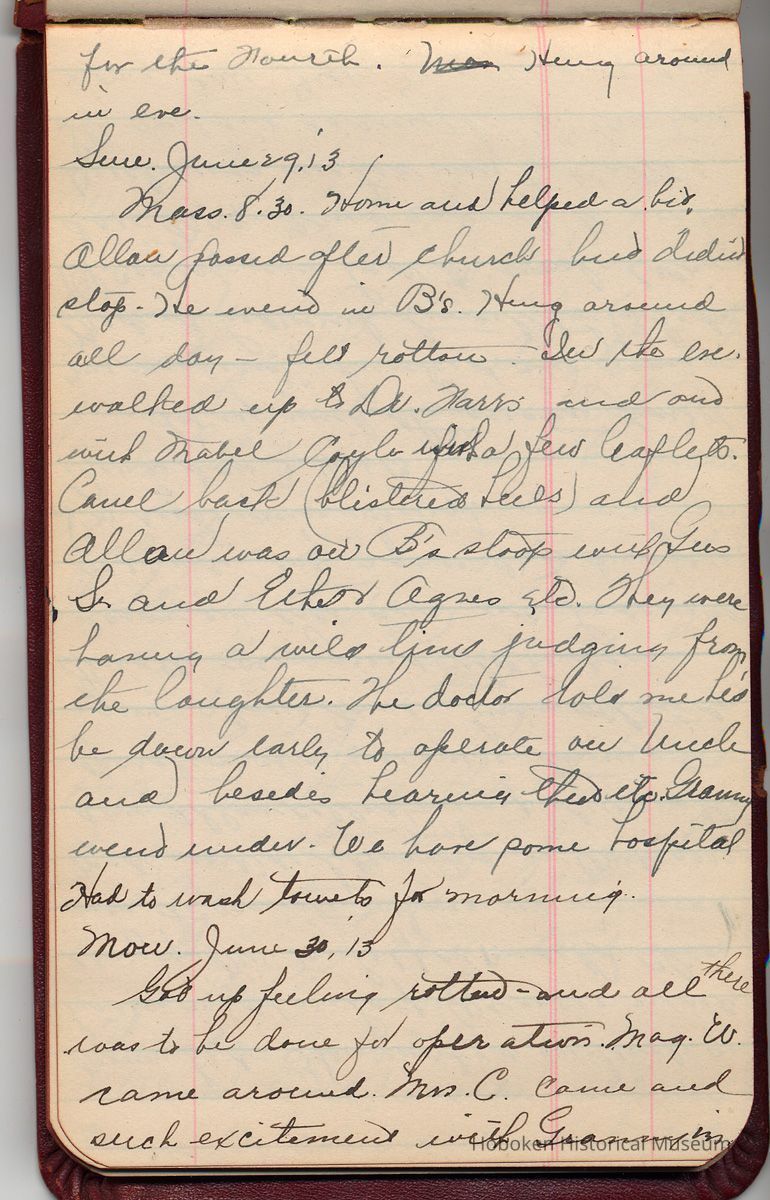 for the Fourth. Hung around
in eve.
Sun. June 29, 13
Mass. 8.30. Home and helped a bit.
Allan passed after church but didn't
stop. He went in B's. Hung around
all day - felt rotten. In the eve.
walked up to Dr. Harris and out
with Mabel with a few leaflets.
Came back (blistered heels) and
Allan was on B's stoop with Gus
S. and Ethel Agnes etc. They were
having a wild time judging from
the laughter. The doctor told me he'd
be down early to operate on Uncle
and besides hearing that Granny
went under. We have some hospital
Had to wash towels for morning.
Mon. June 30, 13
Got up feeling rotten - and all there
was to be done for operation. Mag. W.
came around. Mrs. C. came and
such excitement with Granny in
Hoboken Historical Museum